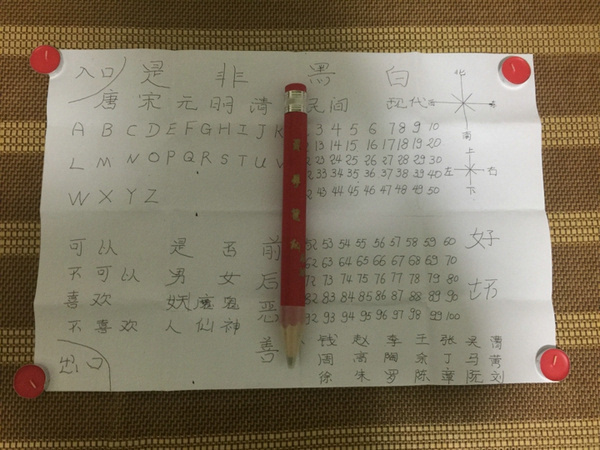 入口 是 非 黑 白
唐 宋 元 明 清 民间 现代
北
南
A B C D E F G H I J K
L M N O P Q R S T U V
W X Y Z
3 4 5 6 7 8 9 10
13 14 15 16 17 18 19 20
23 24 25 26 27 28 29 30
33 34 35 36 37 38 39 40
43 44 45 46 47 48 49 50
上
左 右
下
可以 是 否 前
不可以 男 女 后
喜欢 妖魔鬼 恶
不喜欢 人 仙 神 善
52 53 54 55 56 57 58 59 60
62 63 64 65 66 67 68 69 70
72 73 74 75 76 77 78 79 80
82 83 84 85 86 87 88 89 90
92 93 94 95 96 97 98 99 100
好
坏
钱 赵 李 王 张 吴
周 高 陶 余 丁 马 黄
徐 朱 罗 陈 章 阮 刘
出口